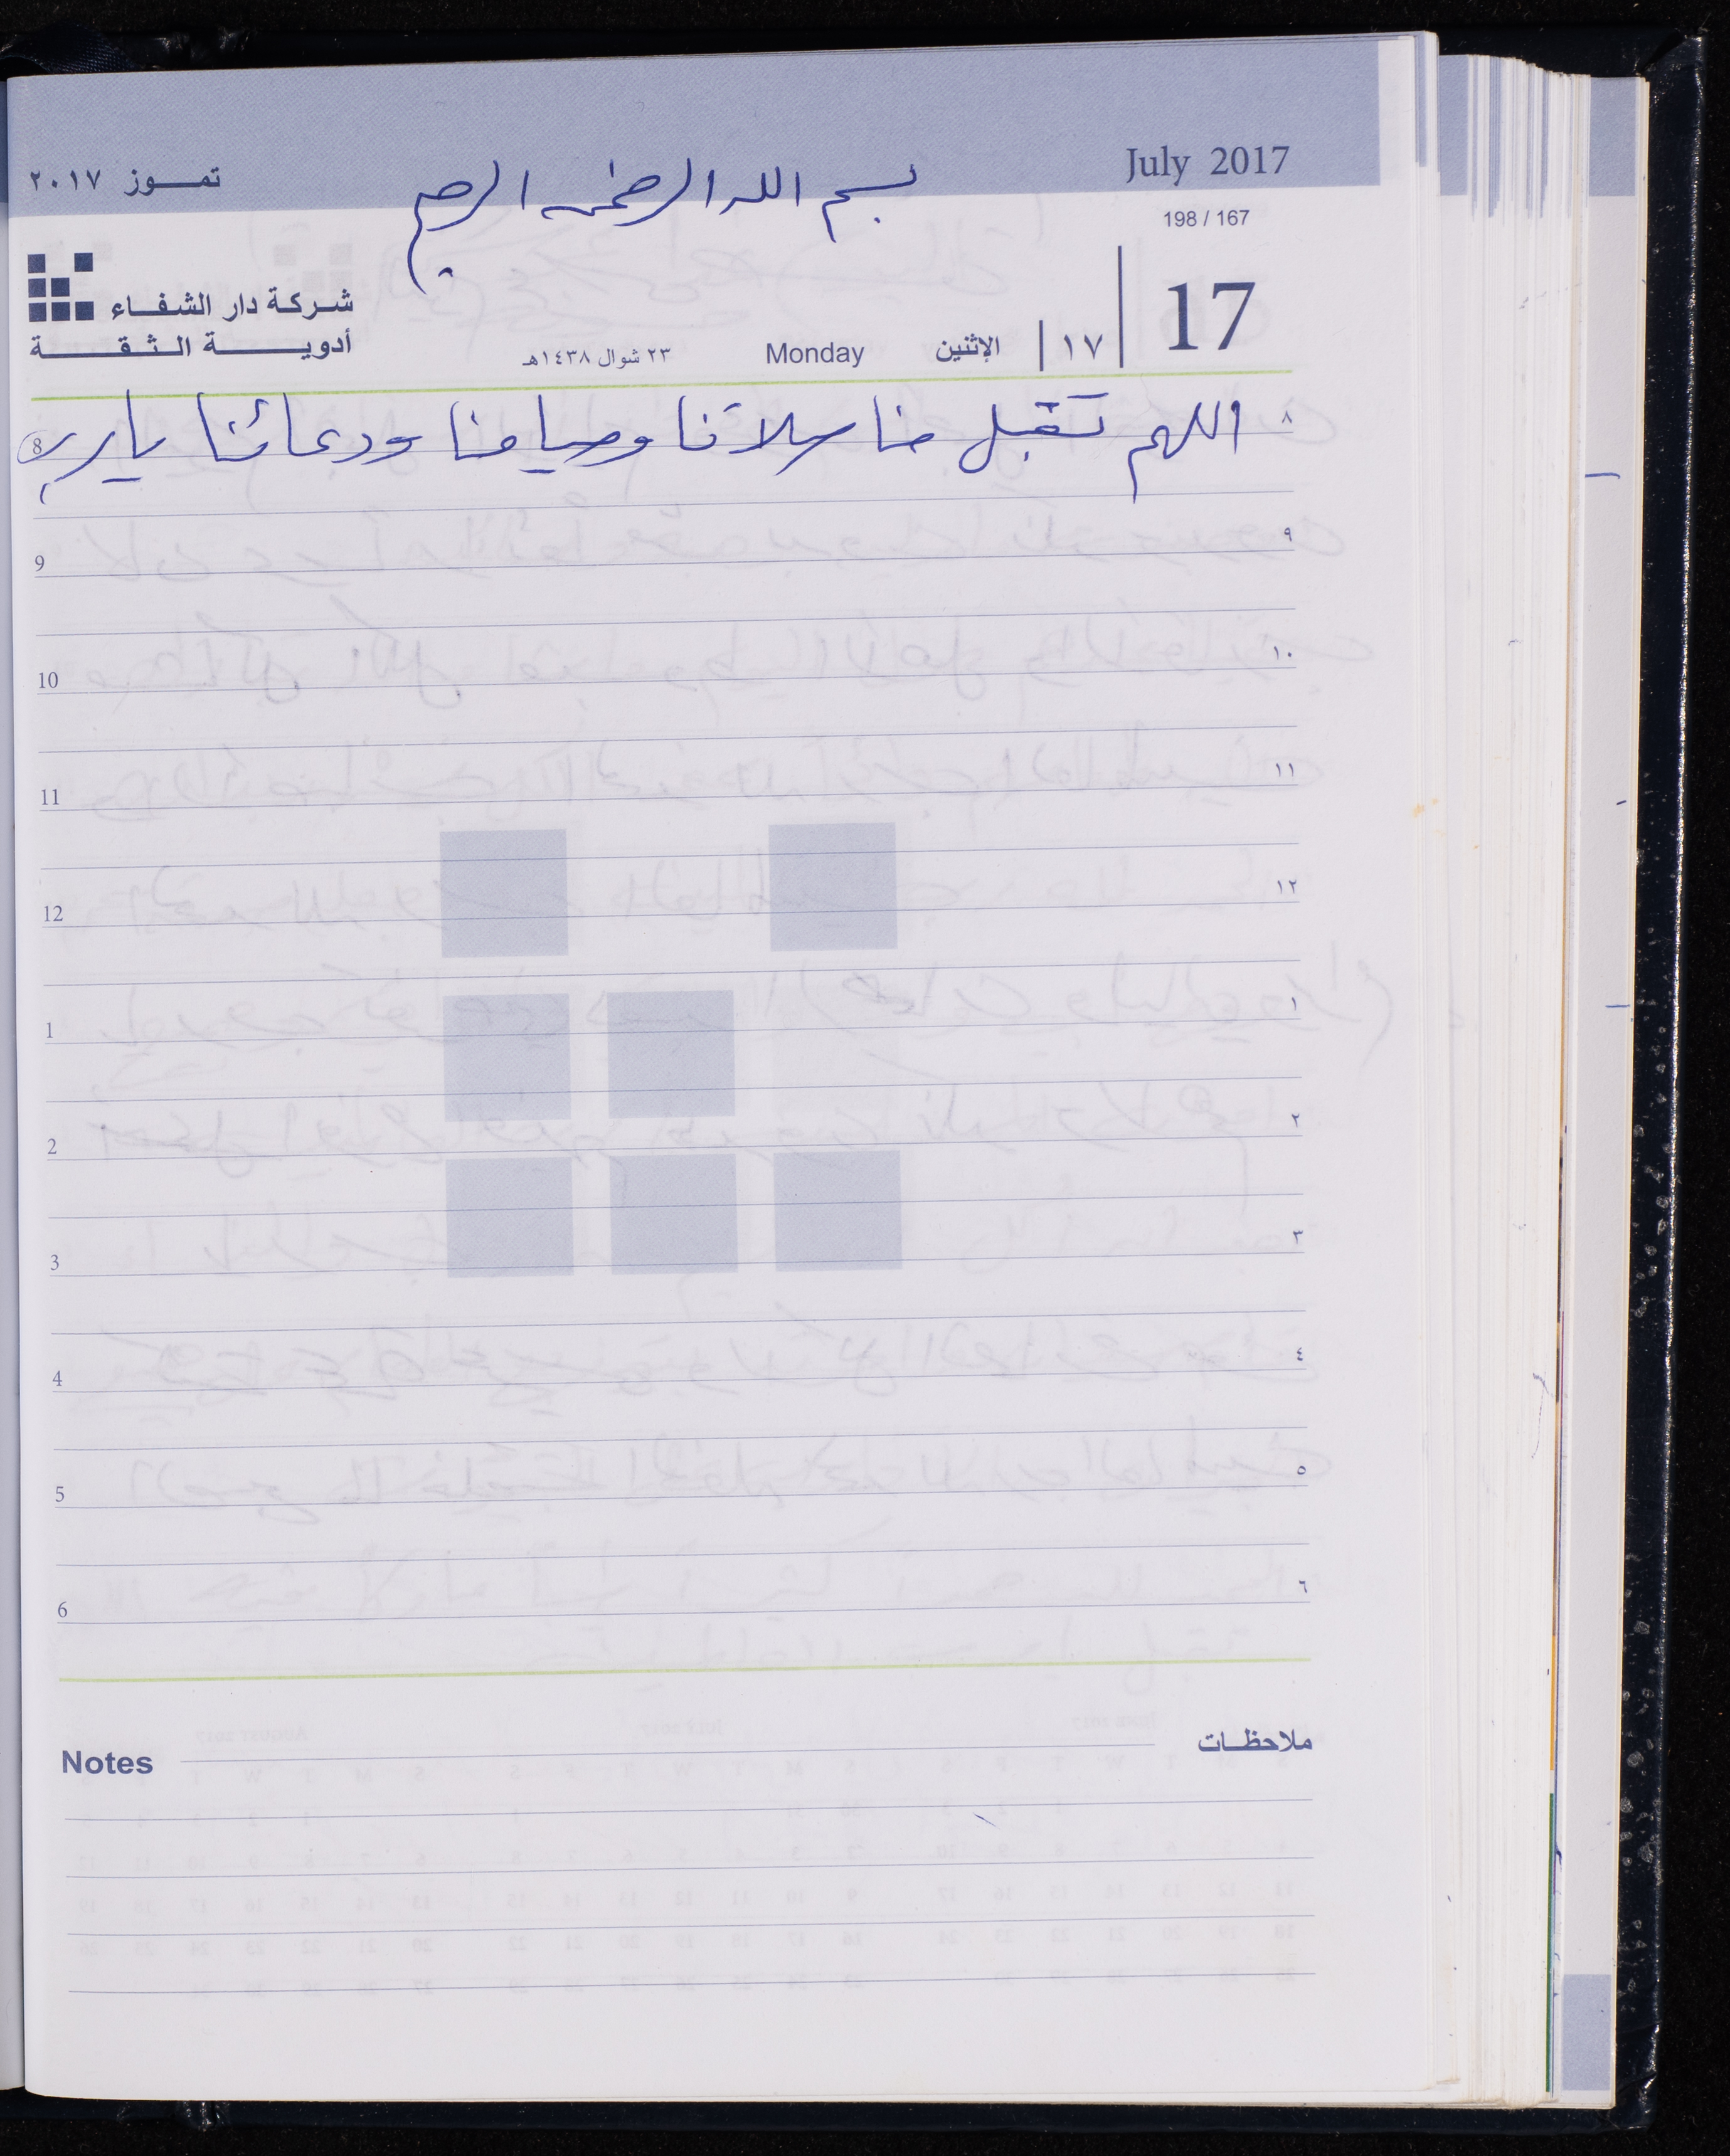 July 2017
تموز ٢٠١٧
بسم الله الرحمن الرحيم
198 / 167
17
١٧
الإثنين
Monday
٢٣ شوال ١٤٣٨هـ
شركة دار الشفاء
أدوية الثقة
٨ اللهم تقبل منا صلاتنا وصيامنا ودعائنا يا رب 8
٩ 9
١٠ 10
١١ 11
١٢ 12
١ 1
٢ 2
٣ 3
٤ 4
٥ 5
٦ 6
Notes ملاحظات